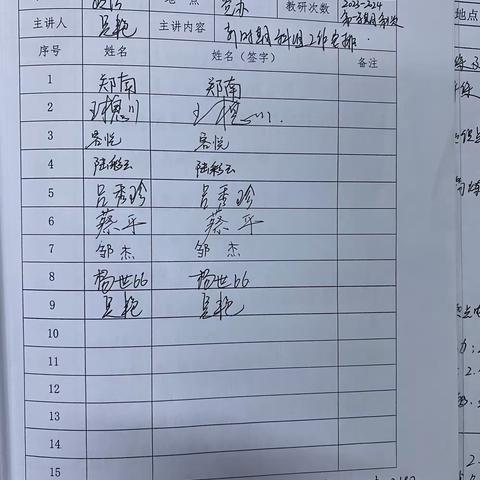 地 点 教研次数 2023-2024
主讲人 吴艳 主讲内容 新时期科组工作安排.
序号 姓名 姓名(签字) 备注
1 郑南 郑南
2 王穗川 王穗川.
3 客悦 客悦
4 陆彩云 陆彩云
5 吕秀珍 吕秀珍
6 蔡平 蔡平
7 邹杰 邹杰
8 杨世66 杨世66
9 吴艳 吴艳
10
11
12
13
14
15
地点